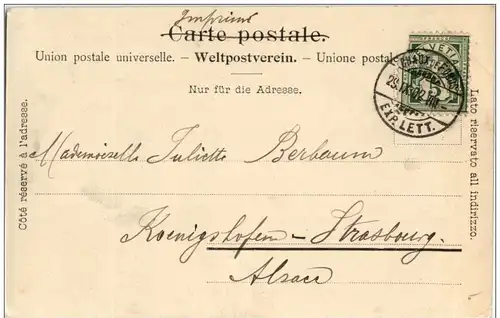 Imprimé
Carte postale.
Union postale universelle. – Weltpostverein. – Unione postale
Nur für die Adresse.
HELVETIA
5
CHAUX-DE-FONDS
EXP. LETT.
Côté réservé à l'adresse.
Lato riservato all indirizzo.
Mademoiselle Juliette Berbaum
Koenigshofen – Strasbourg.
Alsace